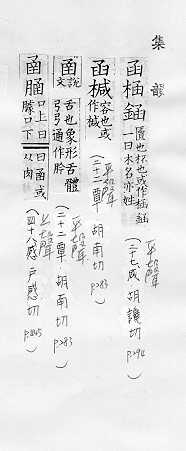 集韻
函𣐺𨥓 匱也杯也或作𣐺𨥓
一曰木名亦姓
平聲
(二十七咸.胡讒切 p294)
函椷 容也或
作椷
平聲
(二十二覃.胡南切 p283)
圅 說文舌也象形舌體
㔾㔾通作肣
平聲
(二十二覃.胡南切 p283)
圅𦜆 口上曰臄口下曰圅或从肉
上聲
(四十八感.戶感切 p445)